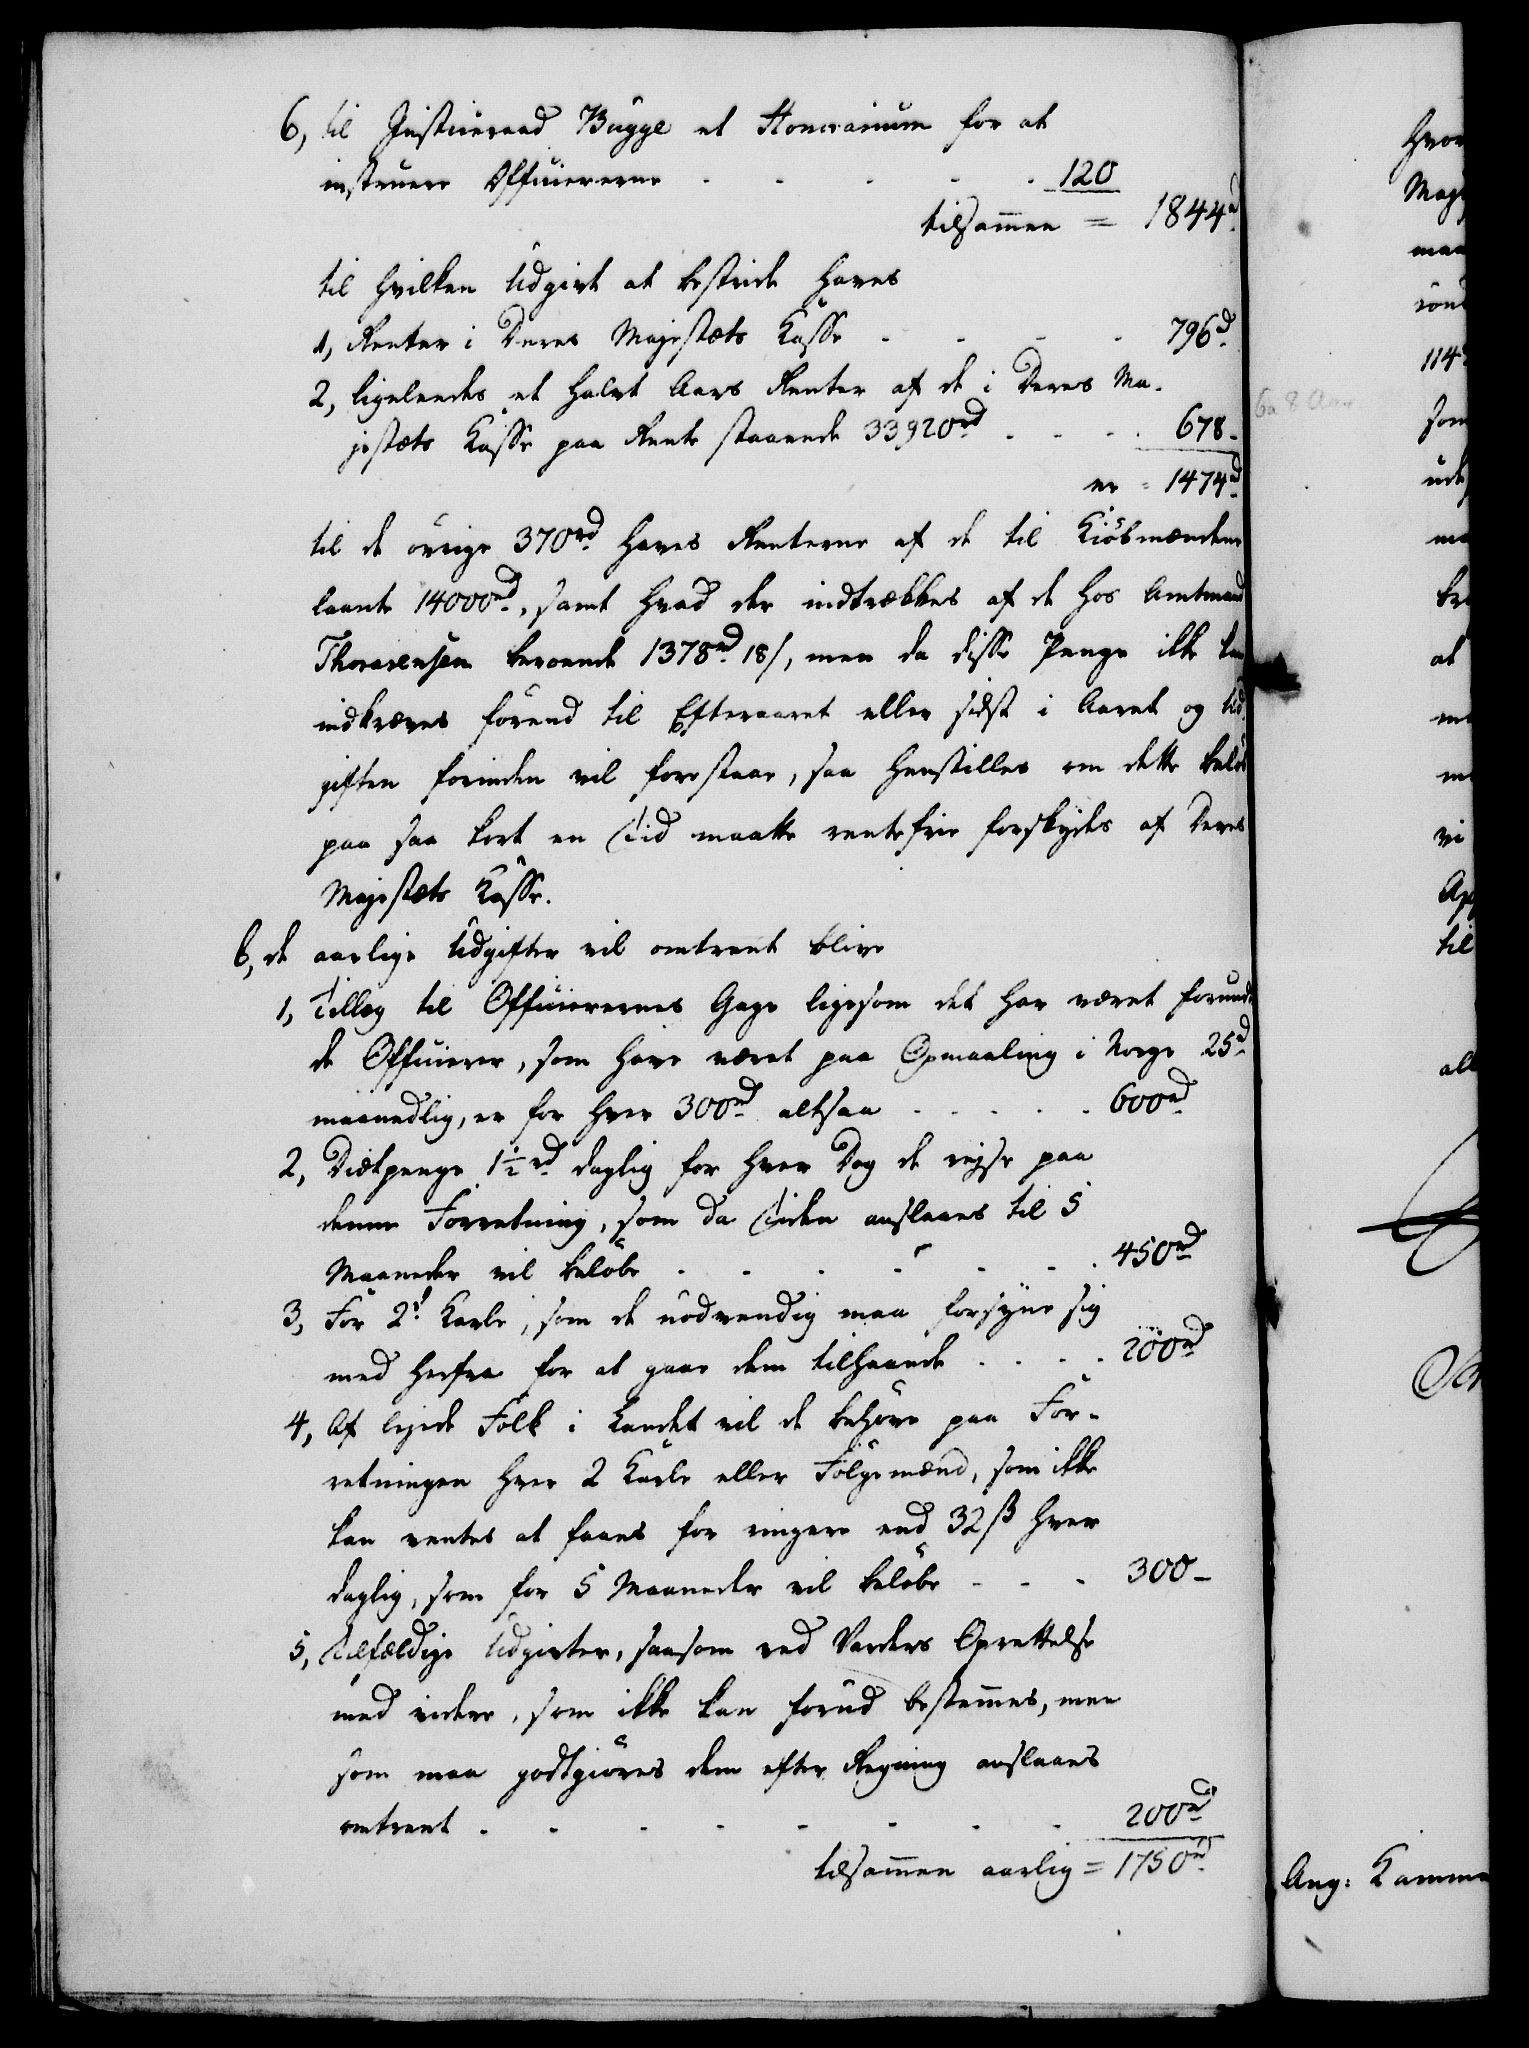 6, til Justiceraad Bugge et Honorarium for at
instruere Officiererne - - - - - 120
tilsammen = 1844rd
til hvilken Udgivt at bestride haves
1, Renter i Deres Majestæts Kasse - - - - 796rd
2, ligeleedes et halvt Aars Renter af de i Deres Ma-
jestæts Kasse paa Rente staaende 33920rd - - - 678-
er - 1474rd
til de övrige 370rd haves Renterne af de til Kiöbmændene
laante 14000rd, samt hvad der indtrækkes af de hos Amtmand
Thorarensen beroende 1378rd 18/, men da disse Penge ikke kan
indkræves förend til Efteraaret eller sidst i Aaret og Ud-
giften forinden vil forestaae, saa henstilles om dette belöb
paa saa kort en Tid maatte rentefrie forskydes af Deres
Majestæts Kasse.
b, de aarlige Udgifter vil omtrent blive
1, Tillæg til Officierernes Gage ligesom det har været forundt
de Officierer, som have været paa Opmaaling i Norge 25rd
maanedlig, er for hver 300rd altsaa - - - - - 600rd
2, Diætpenge 1½rd daglig for hver Dag de rejse paa
denne Forretning, som da Tiden anslaaes til 5
Maaneder vil belöbe - - - - - - 450rd
3, For 2de Karle, som de nödvendig maa forsyne sig
med herfra for at gaae dem tilhaande - - - - 200rd
4, Af lejede Folk i Landet vil de behöve paa For-
retningen hver 2 Karle eller Fölgemænd, som ikke
kan ventes at faaes for ringere end 32 ß hver
daglig, som for 5 Maaneder vil belöbe - - - 300-
5, Tilfældige Udgivter, saasom ved Varders Oprettelse
med videre, som ikke kan forud bestemmes, men
som maa godtgiöres dem efter Regning anslaaes
omtrent - - - - - - - - 200rd
tilsammen aarlig = 1750rd
6 a 8 Aar
114
som
at
vi
til
Ang: Kamme